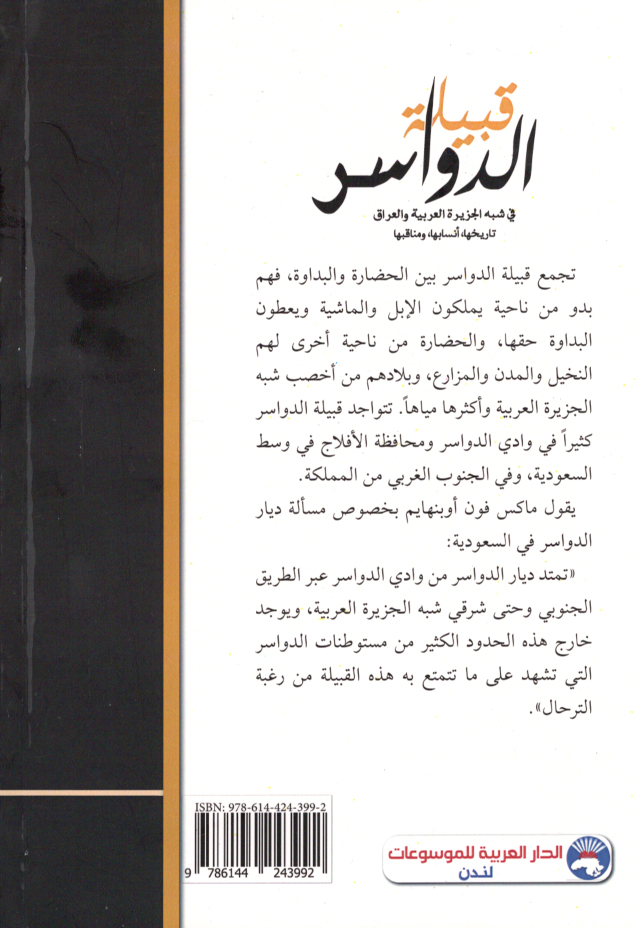 قبيلة
الدواسر
في شبه الجزيرة العربية والعراق
تاريخها، أنسابها، ومناقبها
تجمع قبيلة الدواسر بين الحضارة والبداوة، فهم
بدو من ناحية يملكون الإبل والماشية ويعطون
البداوة حقها، والحضارة من ناحية أخرى لهم
النخيل والمدن والمزارع، وبلادهم من أخصب شبه
الجزيرة العربية وأكثرها مياهاً. تتواجد قبيلة الدواسر
كثيراً في وادي الدواسر ومحافظة الأفلاج في وسط
السعودية، وفي الجنوب الغربي من المملكة.
يقول ماكس فون أوبنهايم بخصوص مسألة ديار
الدواسر في السعودية:
«تمتد ديار الدواسر من وادي الدواسر عبر الطريق
الجنوبي وحتى شرقي شبه الجزيرة العربية، ويوجد
خارج هذه الحدود الكثير من مستوطنات الدواسر
التي تشهد على ما تتمتع به هذه القبيلة من رغبة
الترحال».
ISBN: 978-614-424-399-2
9 786144 243992
الدار العربية للموسوعات
لندن